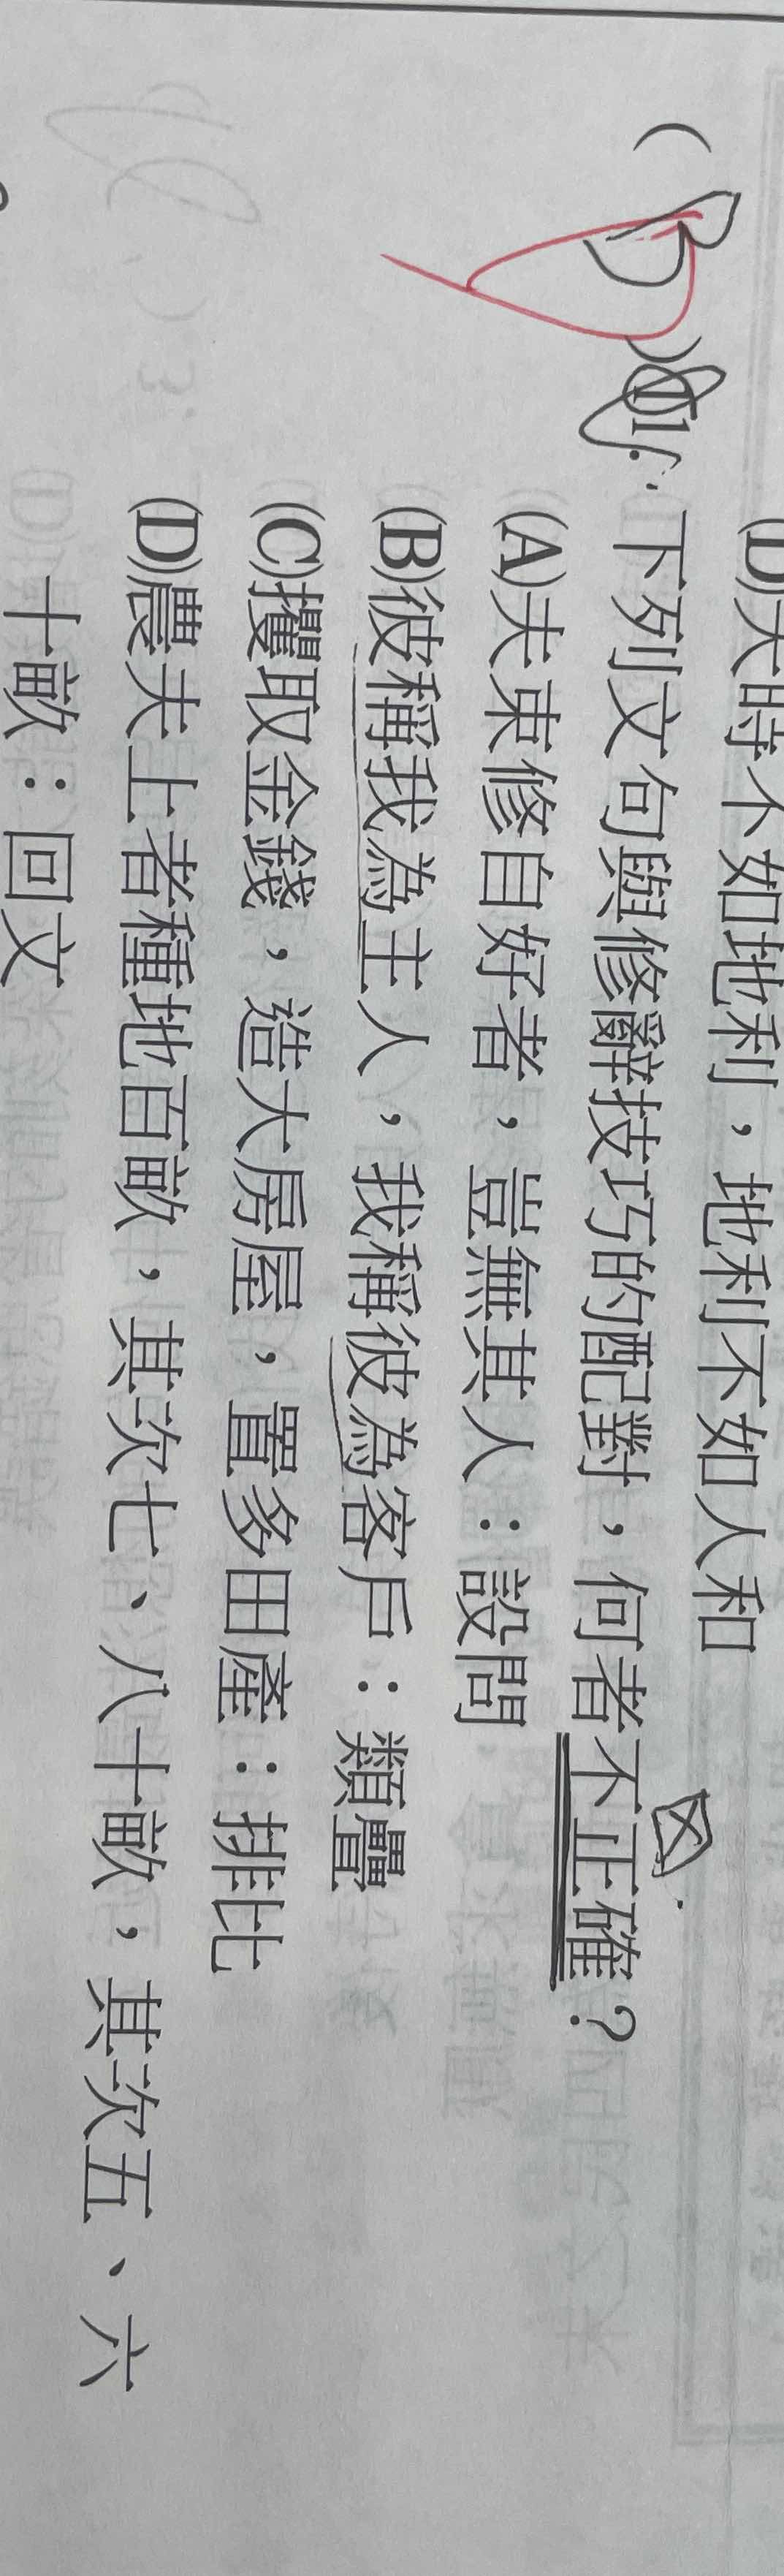 (D)天時不如地利，地利不如人和
( B )1.下列文句與修辭技巧的配對，何者不正確？
(A)夫束修自好者，豈無其人：設問
(B)彼稱我為主人，我稱彼為客戶：類疊
(C)攫取金錢，造大房屋，置多田產：排比
(D)農夫上者種地百畝，其次七、八十畝，其次五、六
十畝：回文